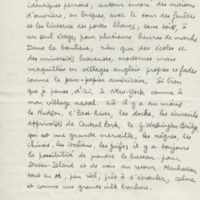 identiques perrons, autour encore des maisons
d'ouvriers, en briques, avec le haut des fenêtres
et les linteaux des portes blancs, sans toit, à
un seul étage, pour plusieurs heures de marche.
Dans la banlieue, rien que des écoles et
des universités luxueuses, modernes mais
maquillées en villages anglais propres et fades
comme le pain-papier américain. Si bien
que je pense, d'ici, à New-York comme à
mon village natal. Là il y a au moins
le Hudson, l'East-River, les docks, les écureuils
apprivoisés de Central Park, le G. Washington Bridge
qui est une grande merveille, les nègres, les
Chinois, les Italiens, les juifs, il y a toujours
la possibilité de prendre le bateau pour
Staten-Island et de voir au retour Manhattan
tout en or, peu réel, près à s'écrouler, calme
et comme une grande ville barbare.